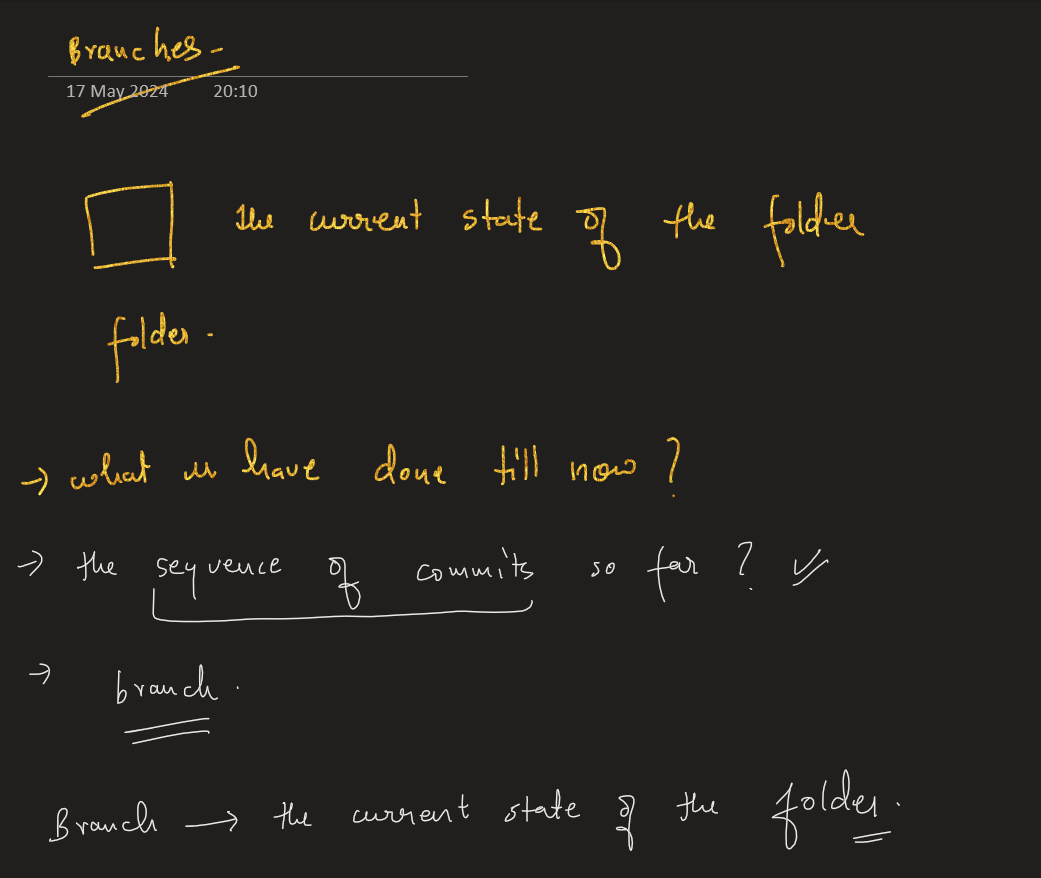 Branches -
17 May 2024 20:10
the current state of the folder
folder .
→ what we have done till now ?
→ the sequence of commits so far ?
→ branch .
Branch → the current state of the folder .